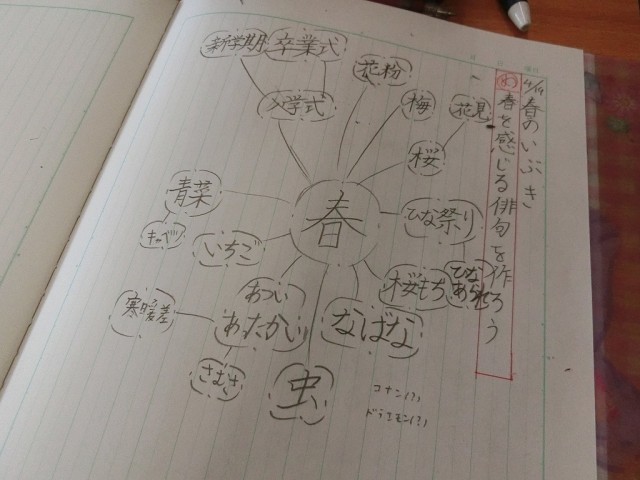 4/14 春のいぶき
め 春を感じる俳句を作ろう
春
新学期
卒業式
入学式
花粉
梅
桜
花見
ひな祭り
桜もち
ひな
あられ
なばな
虫
あつい
あたたかい
さむさ
寒暖差
いちご
青菜
キャベツ
コナン(?)
ドラえモン(?)